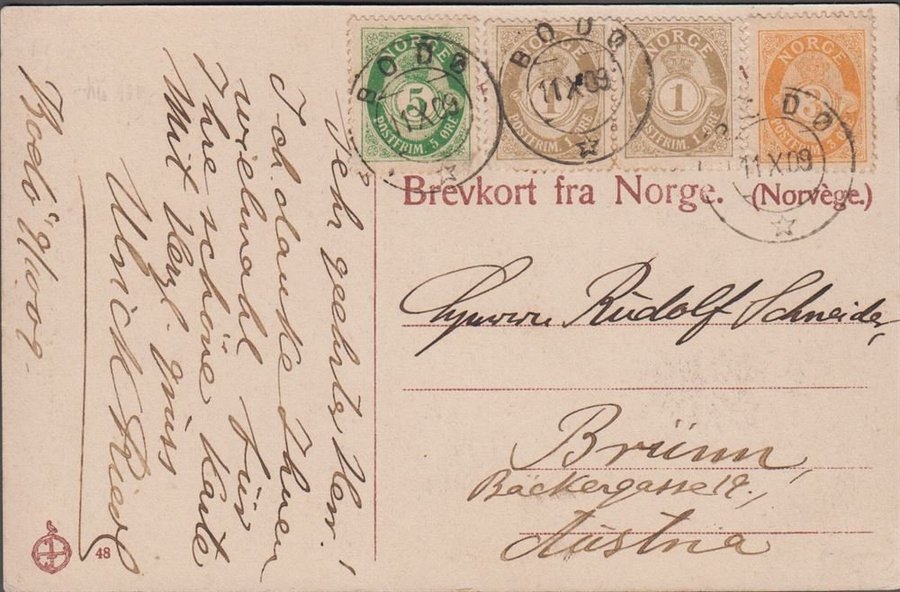 NORGE
5
POSTFRIM. 5 ØRE
NORGE
POSTFRIM. 1 ØRE
NORGE
1
POSTFRIM. 1 ØRE
NORGE
3
POSTFRIM. 3 ØRE
BODØ
11 X 09
BODØ
11 X 09
BODØ
11 X 09
Brevkort fra Norge. (Norvège.)
Rudolf Schneider,
Brünn,
Bäckergasse
Austria
Sehr geehrter Herr!
Ich danke Ihnen
vielmahl für
Ihre schöne Karte
Mit Herzl. gruss
Ulrick
Bodö 9/10 09.
48